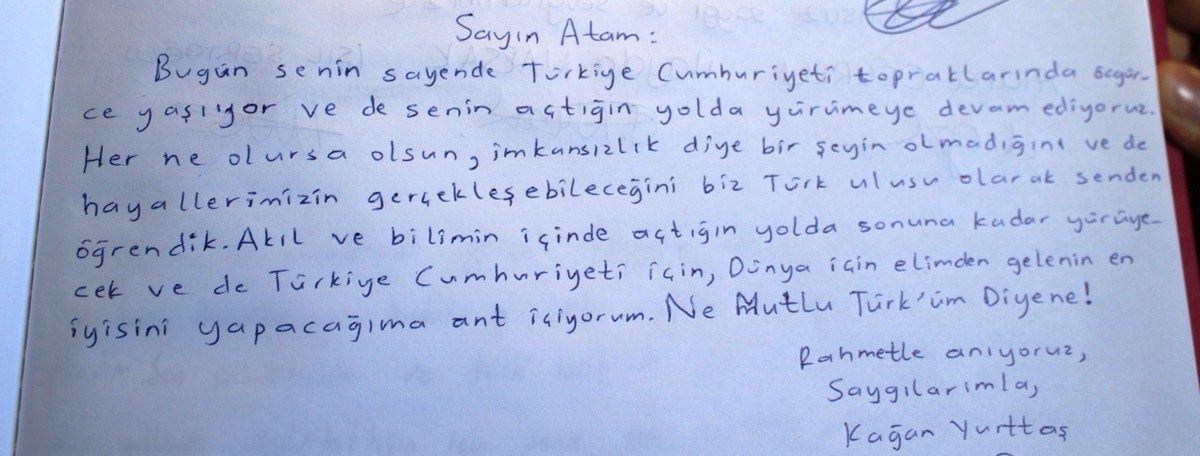 Sayın Atam:
Bugün senin sayende Türkiye Cumhuriyeti topraklarında özgür-
ce yaşıyor ve de senin açtığın yolda yürümeye devam ediyoruz.
Her ne olursa olsun, imkansızlık diye bir şeyin olmadığını ve de
hayallerimizin gerçekleşebileceğini biz Türk ulusu olarak senden
öğrendik. Akıl ve bilimin içinde açtığın yolda sonuna kadar yürüye-
cek ve de Türkiye Cumhuriyeti için, Dünya için elimden gelenin en
iyisini yapacağıma ant içiyorum. Ne Mutlu Türk'üm Diyene!
Rahmetle anıyoruz,
Saygılarımla,
Kağan Yurttaş